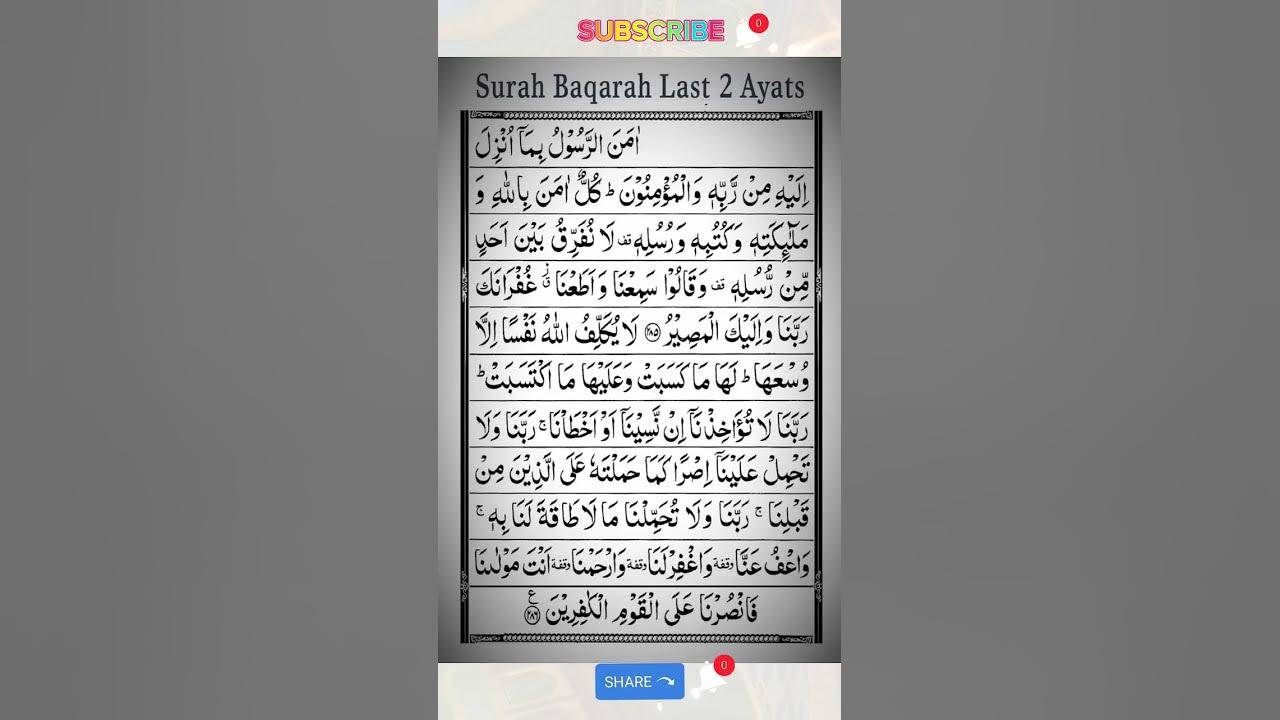 SUBSCRIBE
0
Surah Baqarah Last 2 Ayats
اٰمَنَ الرَّسُوْلُ بِمَاۤ اُنْزِلَ
اِلَیْهِ مِنْ رَّبِّهٖ وَالْمُؤْمِنُوْنَ ؕ كُلٌّ اٰمَنَ بِاللّٰهِ وَ
مَلٰٓئِكَتِهٖ وَكُتُبِهٖ وَرُسُلِهٖ قف لَا نُفَرِّقُ بَیْنَ اَحَدٍ
مِّنْ رُّسُلِهٖ قف وَقَالُوْا سَمِعْنَا وَاَطَعْنَا ق ز غُفْرَانَكَ
رَبَّنَا وَاِلَیْكَ الْمَصِیْرُ ۝۲۸۵ لَا یُكَلِّفُ اللّٰهُ نَفْسًا اِلَّا
وُسْعَهَا ؕ لَهَا مَا كَسَبَتْ وَعَلَیْهَا مَا اكْتَسَبَتْ ؕ
رَبَّنَا لَا تُؤَاخِذْنَاۤ اِنْ نَّسِیْنَاۤ اَوْ اَخْطَاْنَا ۚ رَبَّنَا وَلَا
تَحْمِلْ عَلَیْنَاۤ اِصْرًا كَمَا حَمَلْتَهٗ عَلَی الَّذِیْنَ مِنْ
قَبْلِنَا ۚ رَبَّنَا وَلَا تُحَمِّلْنَا مَا لَا طَاقَةَ لَنَا بِهٖ ۚ
وَاعْفُ عَنَّا وقفة وَاغْفِرْ لَنَا وقفة وَارْحَمْنَا وقفة اَنْتَ مَوْلٰىنَا
فَانْصُرْنَا عَلَی الْقَوْمِ الْكٰفِرِیْنَ ۝۲۸۶ ع
SHARE
0